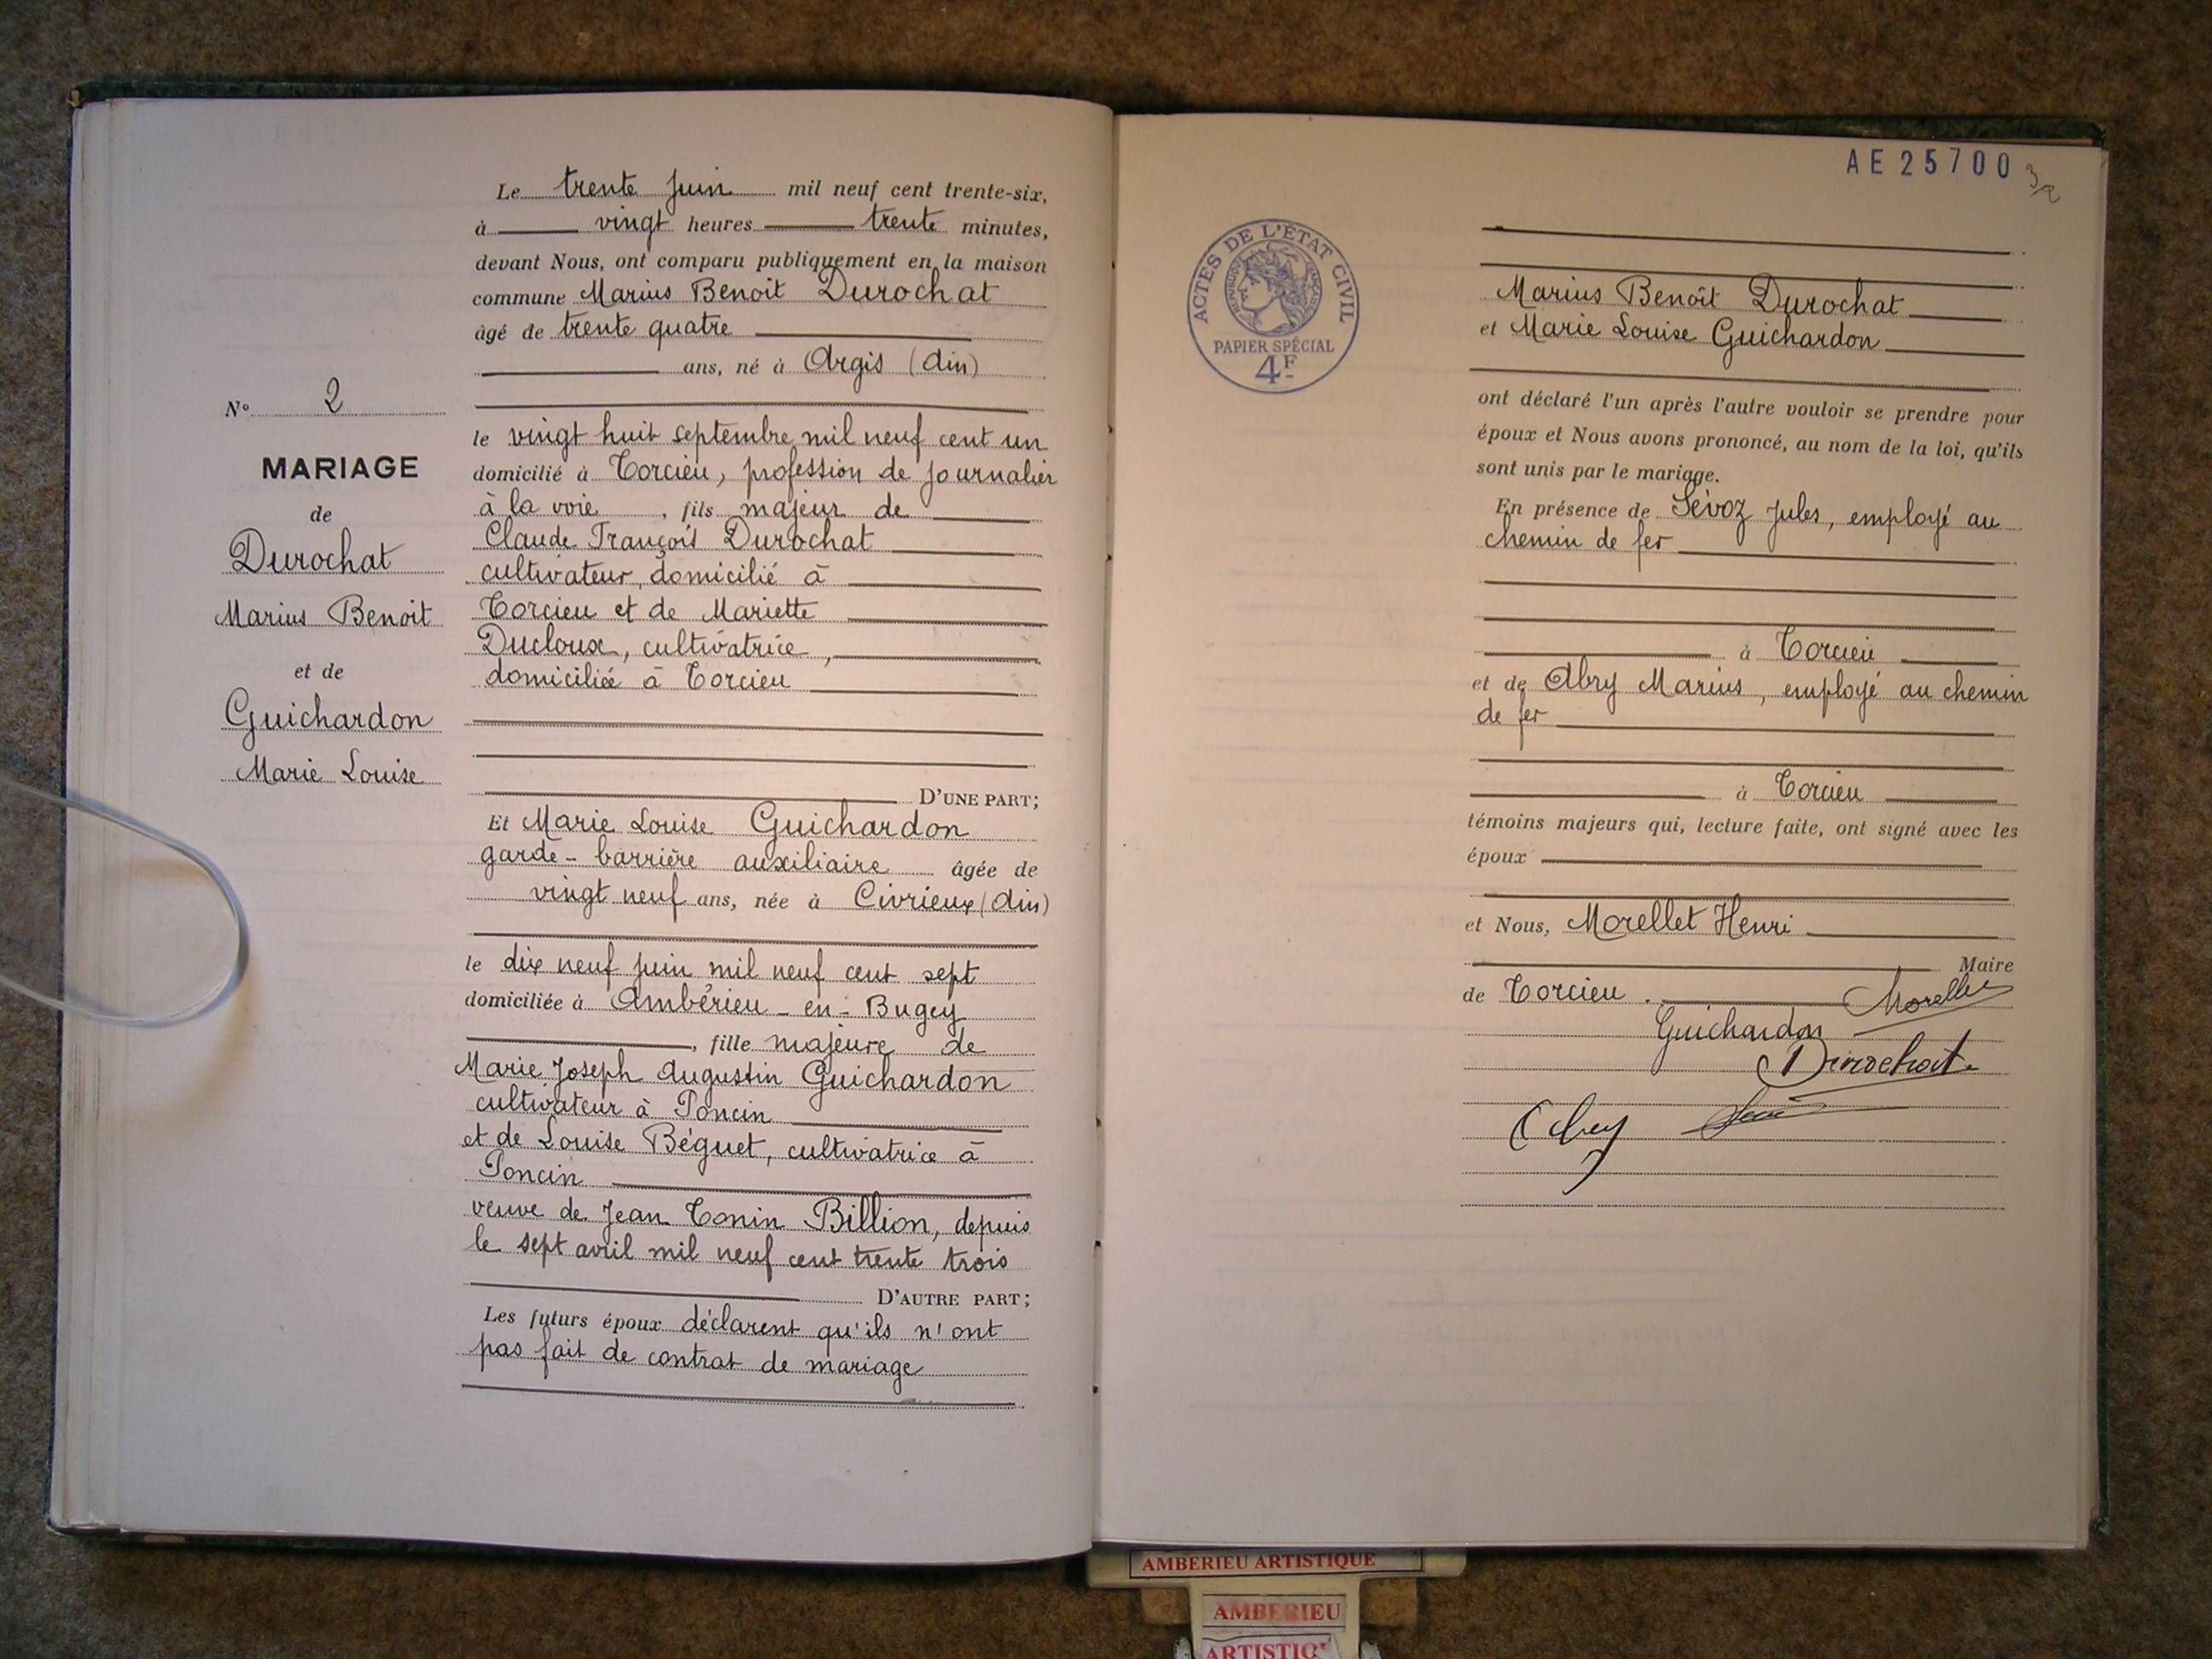 N° 2
MARIAGE
de
Durochat
Marius Benoit
et de
Guichardon
Marie Louise
Le trente juin mil neuf cent trente-six,
à vingt heures trente minutes,
devant Nous, ont comparu publiquement en la maison
commune Marius Benoit Durochat
âgé de trente quatre
ans, né à Argis (Ain)
le vingt huit septembre mil neuf cent un
domicilié à Torcieu, profession de journalier
à la voie, fils majeur de
Claude François Durochat
cultivateur, domicilié à
Torcieu et de Mariette
Ducloux, cultivatrice,
domiciliée à Torcieu
D'UNE PART;
Et Marie Louise Guichardon
garde-barrière auxiliaire âgée de
vingt neuf ans, née à Civrieux (Ain)
le dix neuf juin mil neuf cent sept
domiciliée à Ambérieu-en-Bugey
, fille majeure de
Marie Joseph Augustin Guichardon
cultivateur à Poncin
et de Louise Béguet, cultivatrice à
Poncin
veuve de Jean Tonin Billion, depuis
le sept avril mil neuf cent trente trois
D'AUTRE PART;
Les futurs époux déclarent qu'ils n'ont
pas fait de contrat de mariage
AE25700
3/2
ACTES DE L'ÉTAT CIVIL
RÉPUBLIQUE FRANÇAISE
PAPIER SPÉCIAL
4F
Marius Benoît Durochat
et Marie Louise Guichardon
ont déclaré l'un après l'autre vouloir se prendre pour
époux et Nous avons prononcé, au nom de la loi, qu'ils
sont unis par le mariage.
En présence de Sévoz Jules, employé au
chemin de fer
à Torcieu
et de Abry Marius, employé au chemin
de fer
à Torcieu
témoins majeurs qui, lecture faite, ont signé avec les
époux
et Nous, Morellet Henri
Maire
de Torcieu.
Morellet
Guichardon
Durochat
Abry
AMBERIEU ARTISTIQUE
AMBERIEU
ARTISTIQ